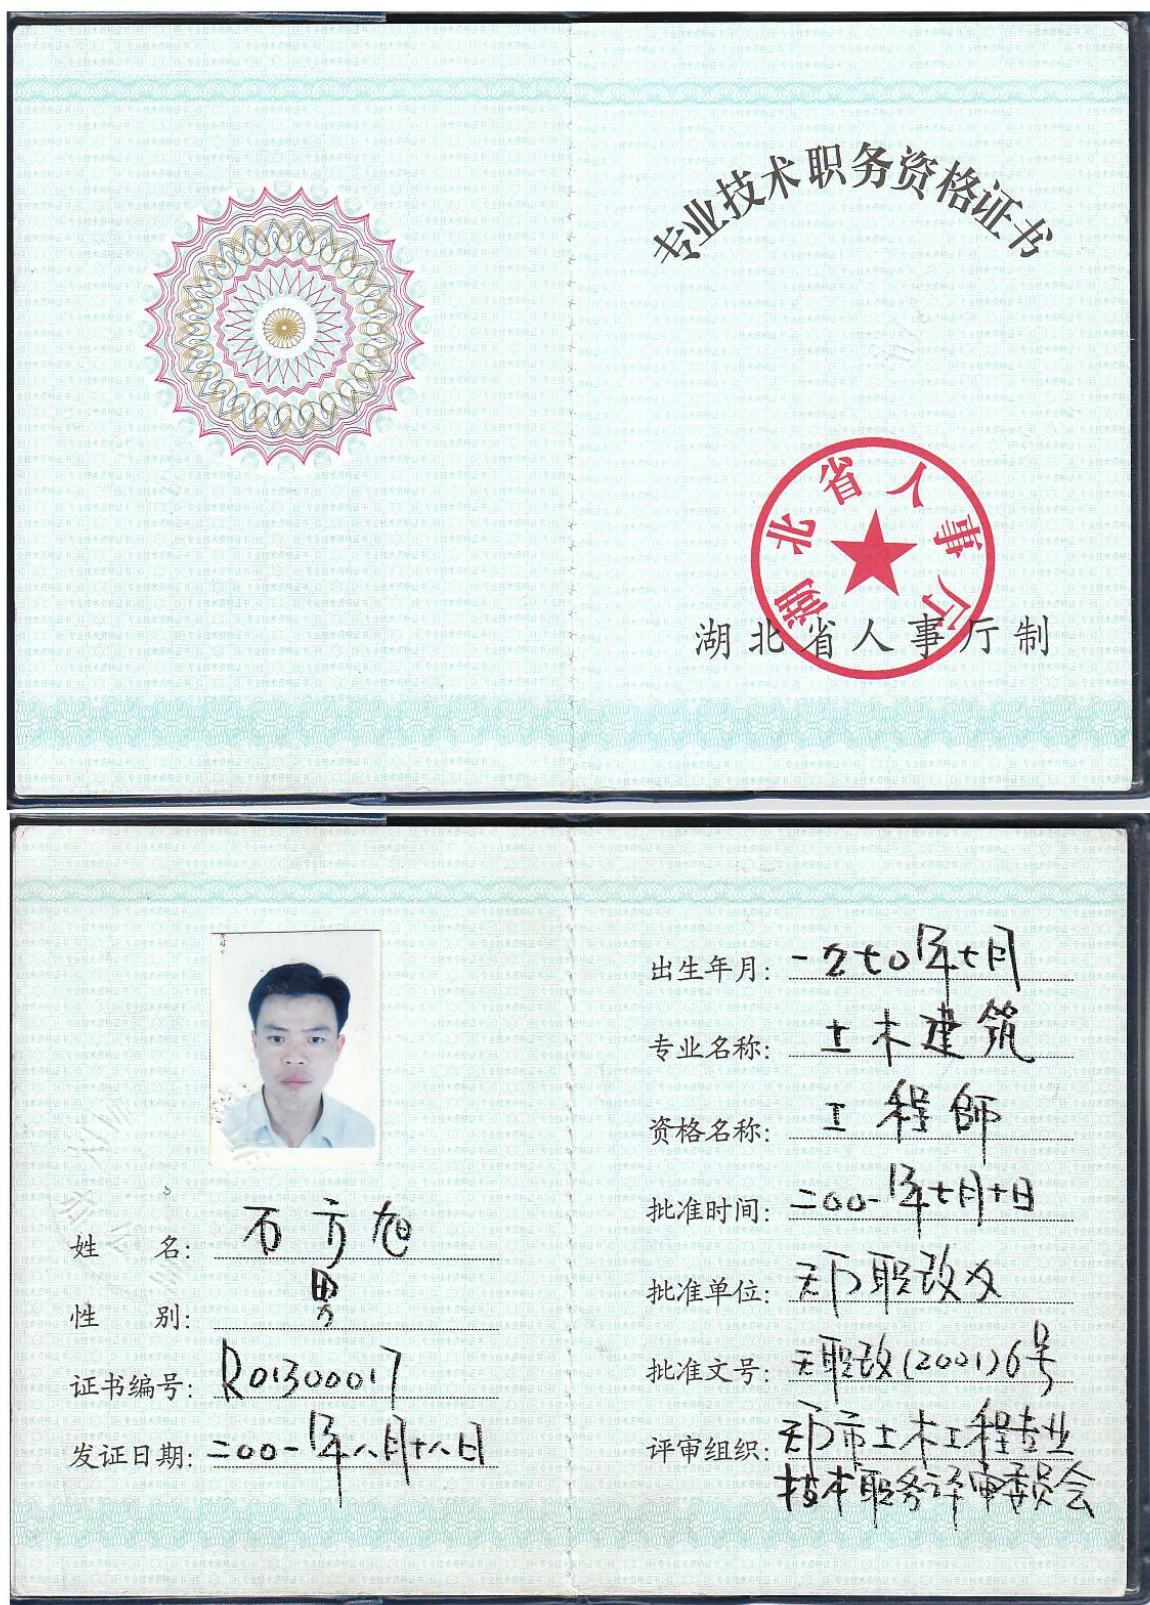 专业技术职务资格证书
湖北省人事厅
湖北省人事厅制
姓 名: 石方旭
性 别: 男
证书编号: R01300017
发证日期: 二00一年八月十八日
出生年月: 一九七0年七月
专业名称: 土木建筑
资格名称: 工程师
批准时间: 二00一年七月十日
批准单位: 职改
批准文号: 职改(2001)6号
评审组织: 市土木工程专业
技术职务评审委员会